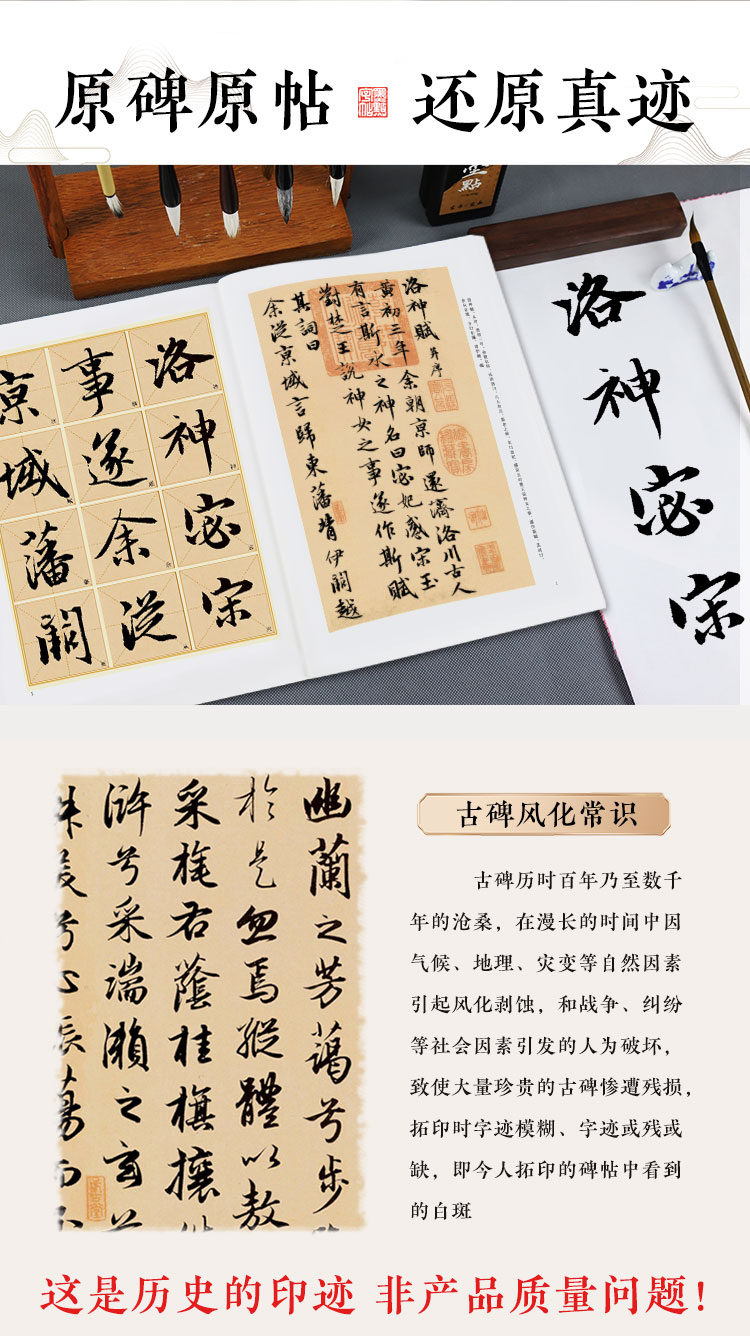 原碑原帖 还原真迹
點
洛神宓宋
事遂余從
京域藩闕
洛神賦 并序
黃初三年余朝京師還濟洛川古人
有言斯水之神名曰宓妃感宋玉
對楚王說神女之事遂作斯賦
其詞曰
余從京域言歸東藩背伊闕越
洛神宓宋
幽蘭之芳藹兮步
於是忽焉縱體以敖
采旄右蔭桂旗攘
滸兮采湍瀨之玄芝
美兮心振蕩而不
古碑风化常识
古碑历时百年乃至数千
年的沧桑，在漫长的时间中因
气候、地理、灾变等自然因素
引起风化剥蚀，和战争、纠纷
等社会因素引发的人为破坏，
致使大量珍贵的古碑惨遭残损，
拓印时字迹模糊、字迹或残或
缺，即今人拓印的碑帖中看到
的白斑
这是历史的印迹 非产品质量问题!